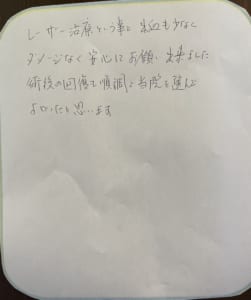 レーザー治療という事で出血も少なく
ダメージなく安心にお願い出来ました
術後の回復も順調で当院を選んで
よかったと思います